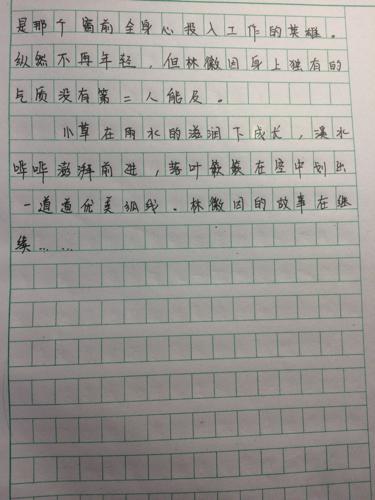 是那个窗前全身心投入工作的英雄。
纵然不再年轻，但林徽因身上独有的
气质没有第二人能及。
小草在雨水的滋润下成长，溪水
哗哗澎湃前进，落叶簌簌在空中划出
一道道优美弧线。林徽因的故事在继
续……